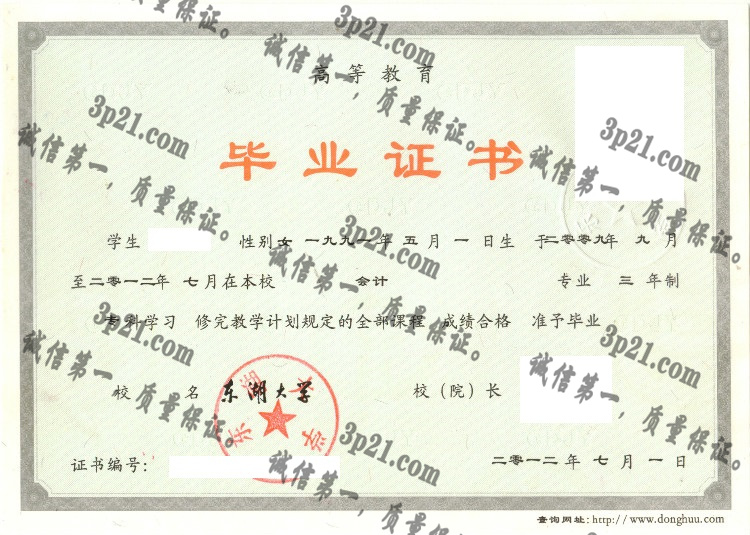 高等教育
毕业证书
学生 性别 女 一九九一年 五 月 一 日生 于二〇〇九年 九 月
至二〇一二年 七 月在本校 会计 专业 三 年制
专科学习 修完教学计划规定的全部课程 成绩合格 准予毕业
校 名 东湖大学 校（院）长
东湖大学
证书编号： 二〇一二年 七 月 一 日
查询网址: http://www.donghuu.com
3p21.com
诚信第一，质量保证。
3p21.com
诚信第一，质量保证。
3p21.com
诚信第一，质量保证。
3p21.com
诚信第一，质量保证。
3p21.com
诚信第一，质量保证。
3p21.com
诚信第一，质量保证。
3p21.com
诚信第一，质量保证。
3p21.com
诚信第一，质量保证。